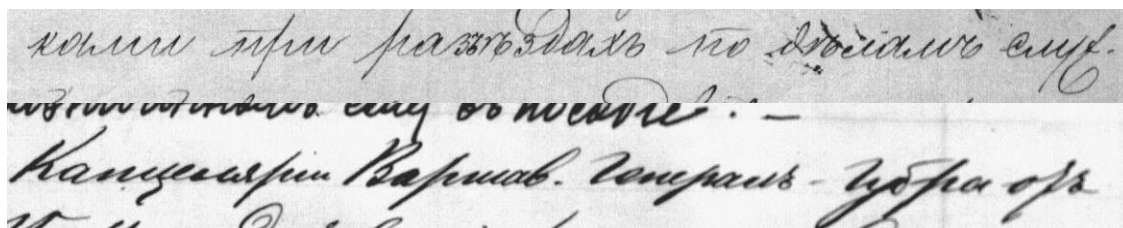 ками при разъѣздахъ по дѣламъ служ.
ему въ посадѣ. —
Канцелярии Варшав. Генералъ - Губра отъ